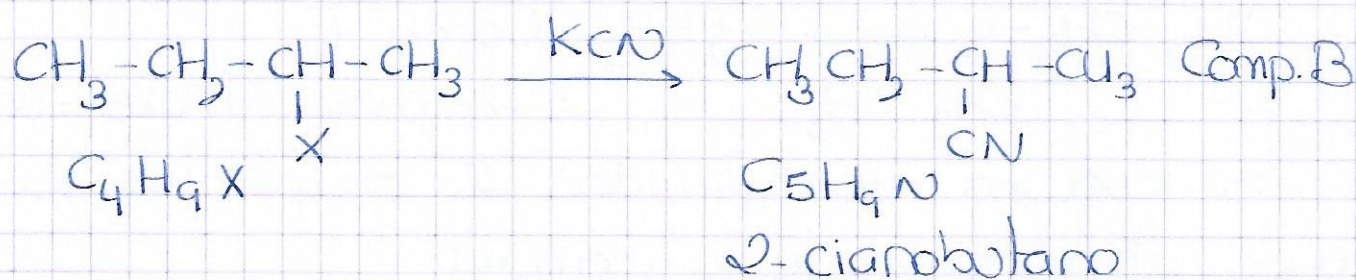 CH₃-CH₂-CH-CH₃ KCN CH₃CH₂-CH-CH₃ Comp. B
X CN
C₄H₉X C₅H₉N
2-cianobutano